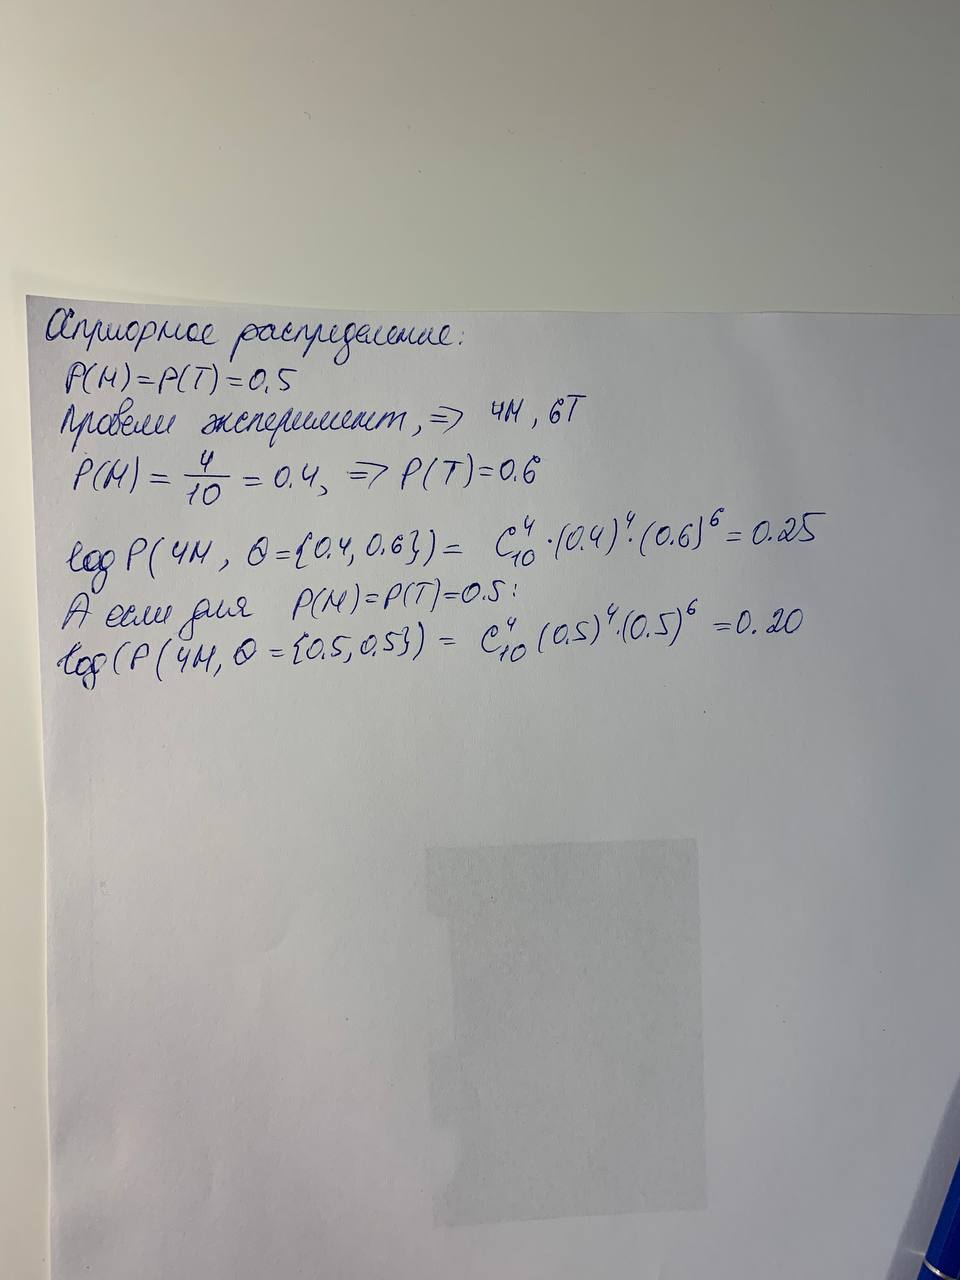 Априорное распределение:
P(H)=P(T)=0.5
Провели эксперимент, => 4H, 6T
P(H) = 4/10 = 0.4, => P(T)=0.6
log P(4H, θ={0.4, 0.6}) = C₁₀⁴ · (0.4)⁴ · (0.6)⁶ = 0.25
А если для P(H)=P(T)=0.5:
log(P(4H, θ={0.5, 0.5}) = C₁₀⁴ (0.5)⁴ · (0.5)⁶ = 0.20